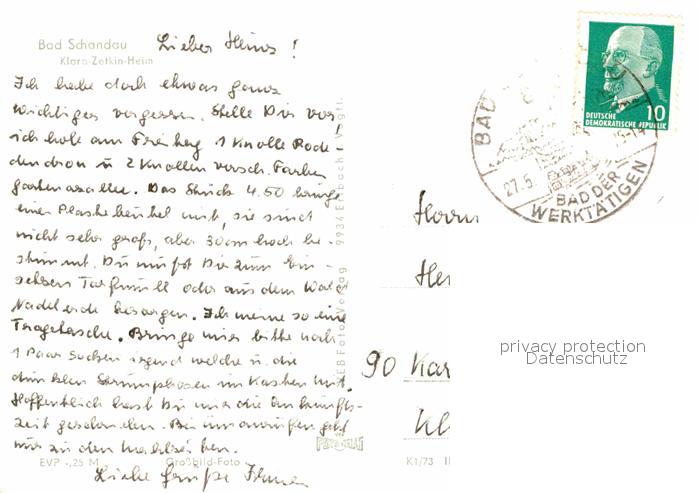 Bad Schandau
Klara-Zetkin-Heim
Lieber Heinz!
Ich habe doch etwas ganz
wichtiges vergessen. Stelle Dir vor!
ich hole am Freitag 1 Knolle Rode-
dendron u 2 Knollen versch. Farben
gartenazalee. Das Stück 4.50 bringe
einen Plastebeutel mit, sie sind
nicht sehr groß, aber 30cm hoch be-
stimmt. Du mußt Dir zum Ein-
setzen Torfmull oder aus dem Wald
Nadelerde besorgen. Ich meine so eine
Tragetasche. Bringe mir bitte noch
1 Paar Socken irgend welche u. die
dunklen Strumpfhosen im Kasten mit.
Hoffentlich hast Du mir die Ankunfts-
zeit geschrieben.
zu den
Liebe Grüße
EVP -,25 M
Großbild-Foto
VEB Foto-Verlag 9934 Elsbach Vogtl.
K1/73
Herrn
90 Kar
Kl
BAD
27.5.
BAD DER
WERKTÄTIGEN
10
DEUTSCHE
DEMOKRATISCHE REPUBLIK
privacy protection
Datenschutz